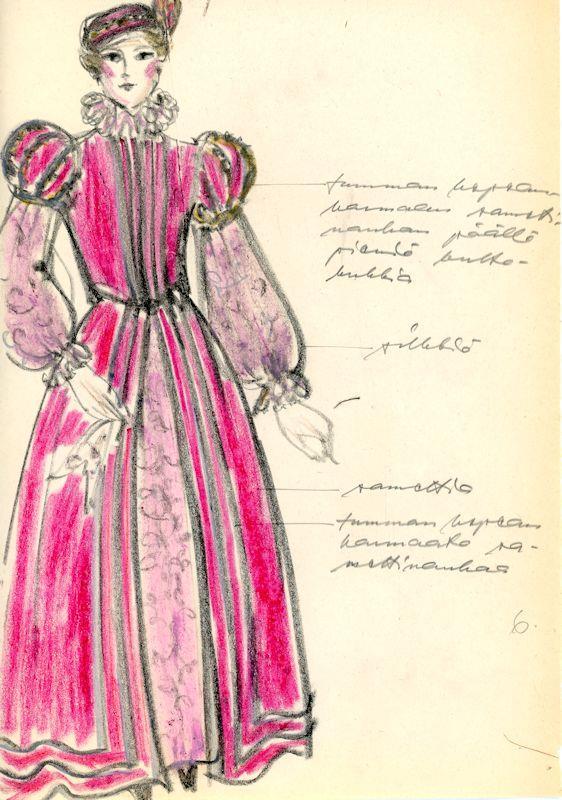 tumman hopean-
harmaan sametti-
nauhan päällä
pieniä kulta-
kukkia
silkkiä
samettia
tumman hopean
harmaata sa-
mettinauhaa
6.